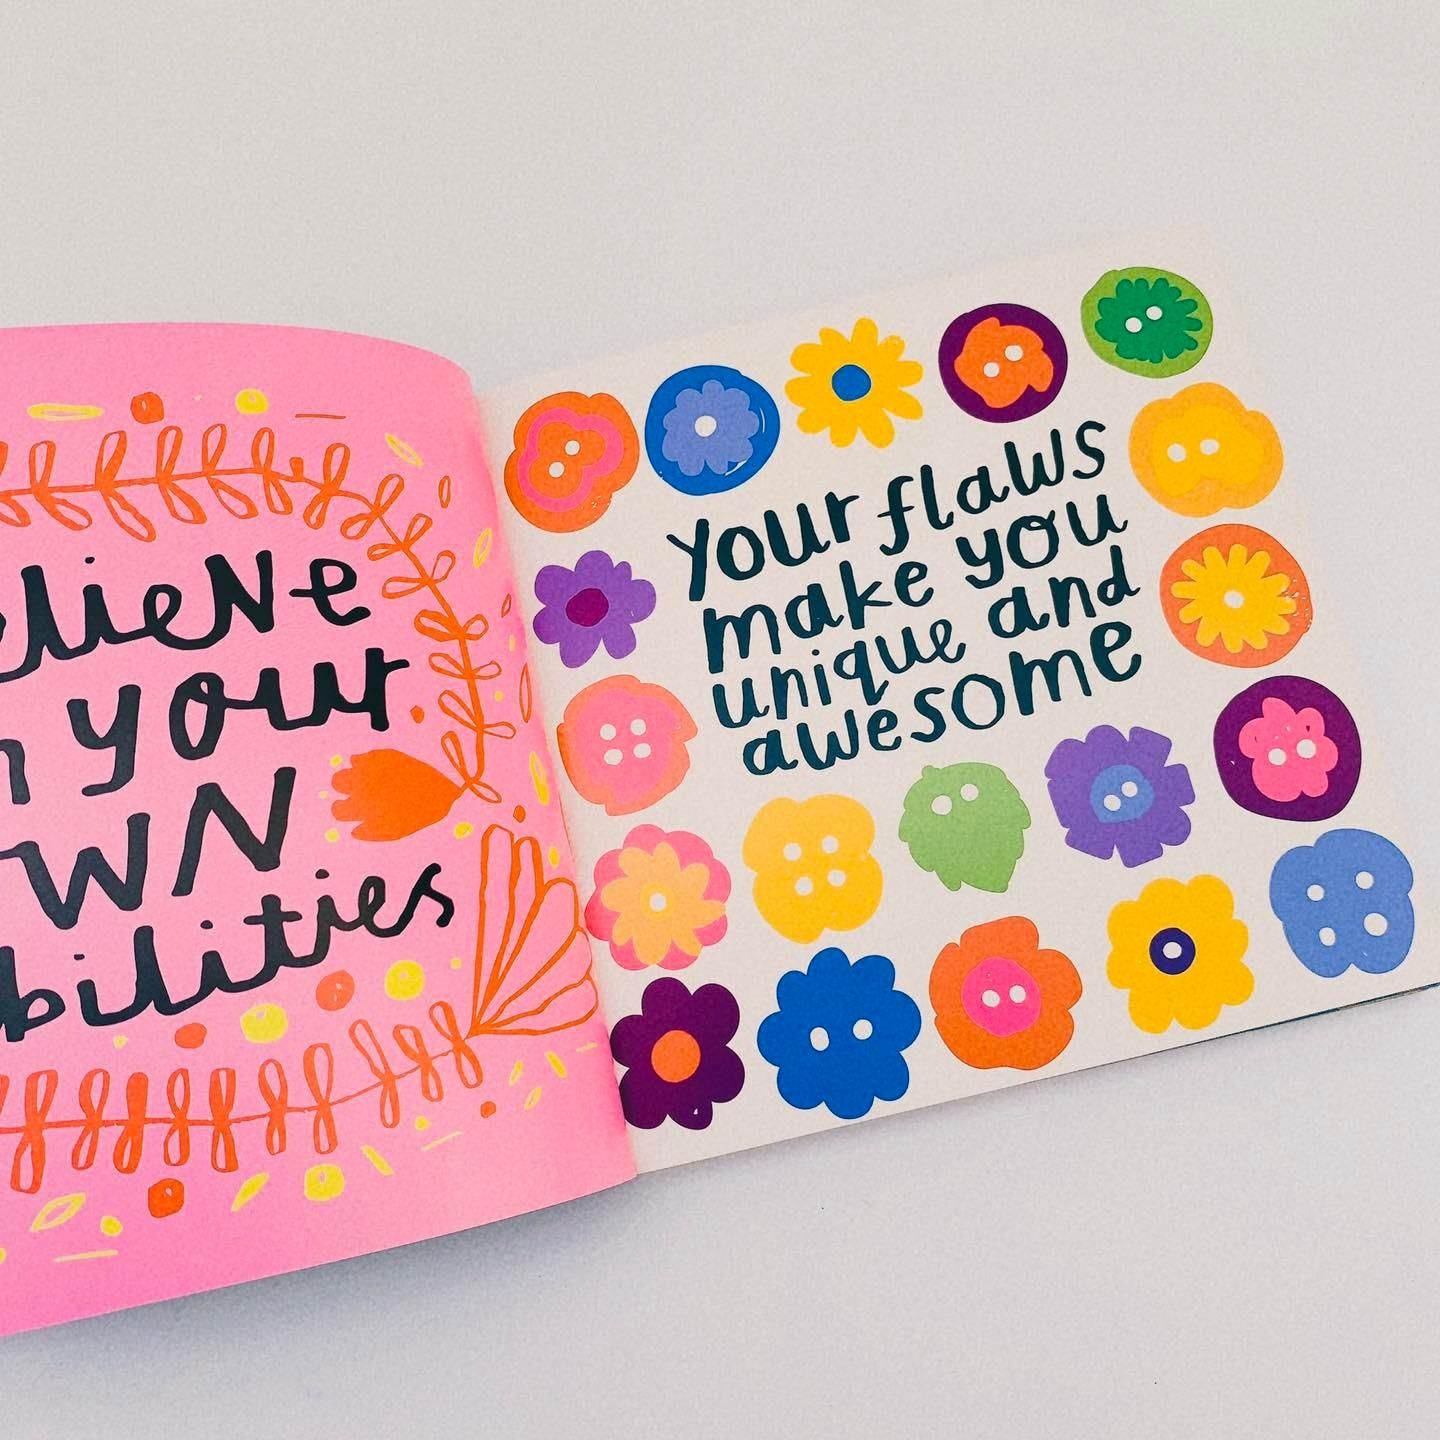 elieve
n your
WN
bilities
your flaws
make you
unique and
awesome